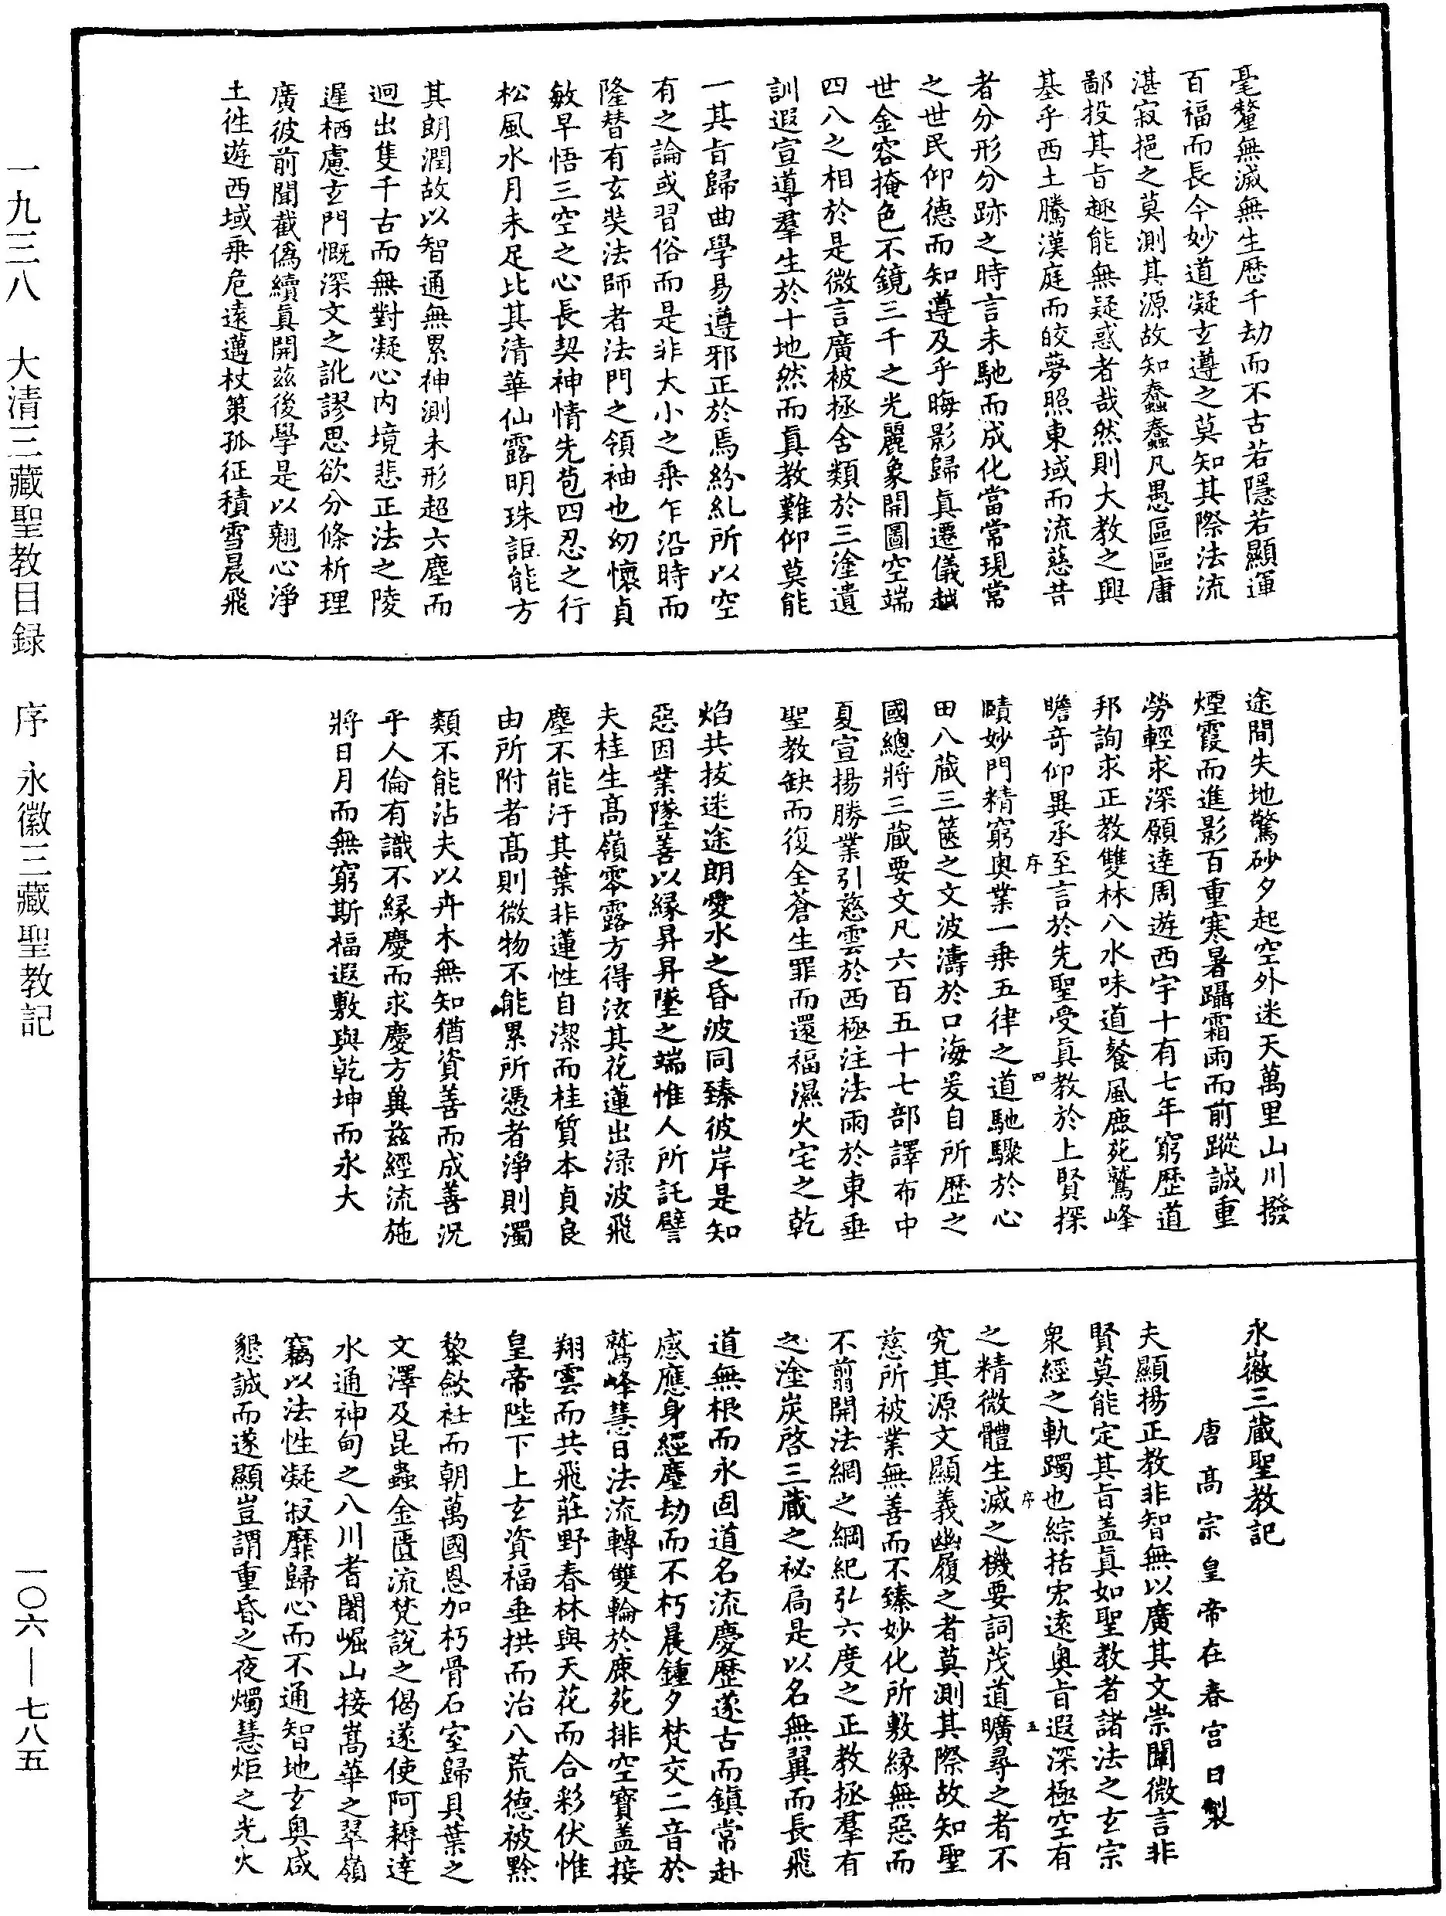 毫釐無滅無生歷千劫而不古若隱若顯運
百福而長今妙道凝玄遵之莫知其際法流
湛寂挹之莫測其源故知蠢蠢凡愚區區庸
鄙投其旨趣能無疑惑者哉然則大教之興
基乎西土騰漢庭而皎夢照東域而流慈昔
者分形分跡之時言未馳而成化當常現常
之世民仰德而知遵及乎晦影歸真遷儀越
世金容掩色不鏡三千之光麗象開圖空端
四八之相於是微言廣被拯含類於三塗遺
訓遐宣導羣生於十地然而真教難仰莫能
一其旨歸曲學易遵邪正於焉紛糺所以空
有之論或習俗而是非大小之乘乍沿時而
隆替有玄奘法師者法門之領袖也幼懷貞
敏早悟三空之心長契神情先苞四忍之行
松風水月未足比其清華仙露明珠詎能方
其朗潤故以智通無累神測未形超六塵而
迥出隻千古而無對凝心內境悲正法之陵
遲栖慮玄門慨深文之訛謬思欲分條析理
廣彼前聞截偽續真開茲後學是以翹心淨
土徃遊西域乘危遠邁杖策孤征積雪晨飛
途間失地驚砂夕起空外迷天萬里山川撥
煙霞而進影百重寒暑躡霜雨而前蹤誠重
勞輕求深願達周遊西宇十有七年窮歷道
邦詢求正教雙林八水味道餐風鹿苑鷲峰
瞻奇仰異承至言於先聖受真教於上賢探
序
四
賾妙門精窮奧業一乘五律之道馳驟於心
田八藏三篋之文波濤於口海爰自所歷之
國總將三藏要文凡六百五十七部譯布中
夏宣揚勝業引慈雲於西極注法雨於東垂
聖教缺而復全蒼生罪而還福濕火宅之乾
焰共拔迷途朗愛水之昏波同臻彼岸是知
惡因業墜善以緣昇昇墜之端惟人所託譬
夫桂生高嶺零露方得泫其花蓮出淥波飛
塵不能汙其葉非蓮性自潔而桂質本貞良
由所附者高則微物不能累所憑者淨則濁
類不能沾夫以卉木無知猶資善而成善況
乎人倫有識不緣慶而求慶方冀茲經流施
將日月而無窮斯福遐敷與乾坤而永大
永徽三藏聖教記
唐高宗皇帝在春宮日製
夫顯揚正教非智無以廣其文崇闡微言非
賢莫能定其旨蓋真如聖教者諸法之玄宗
眾經之軌躅也綜括宏遠奧旨遐深極空有
序
五
之精微體生滅之機要詞茂道曠尋之者不
究其源文顯義幽履之者莫測其際故知聖
慈所被業無善而不臻妙化所敷緣無惡而
不翦開法網之綱紀弘六度之正教拯羣有
之塗炭啓三藏之祕扃是以名無翼而長飛
道無根而永固道名流慶歷遂古而鎮常赴
感應身經塵劫而不朽晨鍾夕梵交二音於
鷲峰慧日法流轉雙輪於鹿苑排空寶蓋接
翔雲而共飛莊野春林與天花而合彩伏惟
皇帝陛下上玄資福垂拱而治八荒德被黔
黎斂衽而朝萬國恩加朽骨石室歸貝葉之
文澤及昆蟲金匱流梵說之偈遂使阿耨達
水通神甸之八川耆闍崛山接嵩華之翠嶺
竊以法性凝寂靡歸心而不通智地玄奧感
懇誠而遂顯豈謂重昏之夜燭慧炬之光火
一九三八 大清三藏聖教目録 序 永徽三藏聖教記 一〇六—七八五